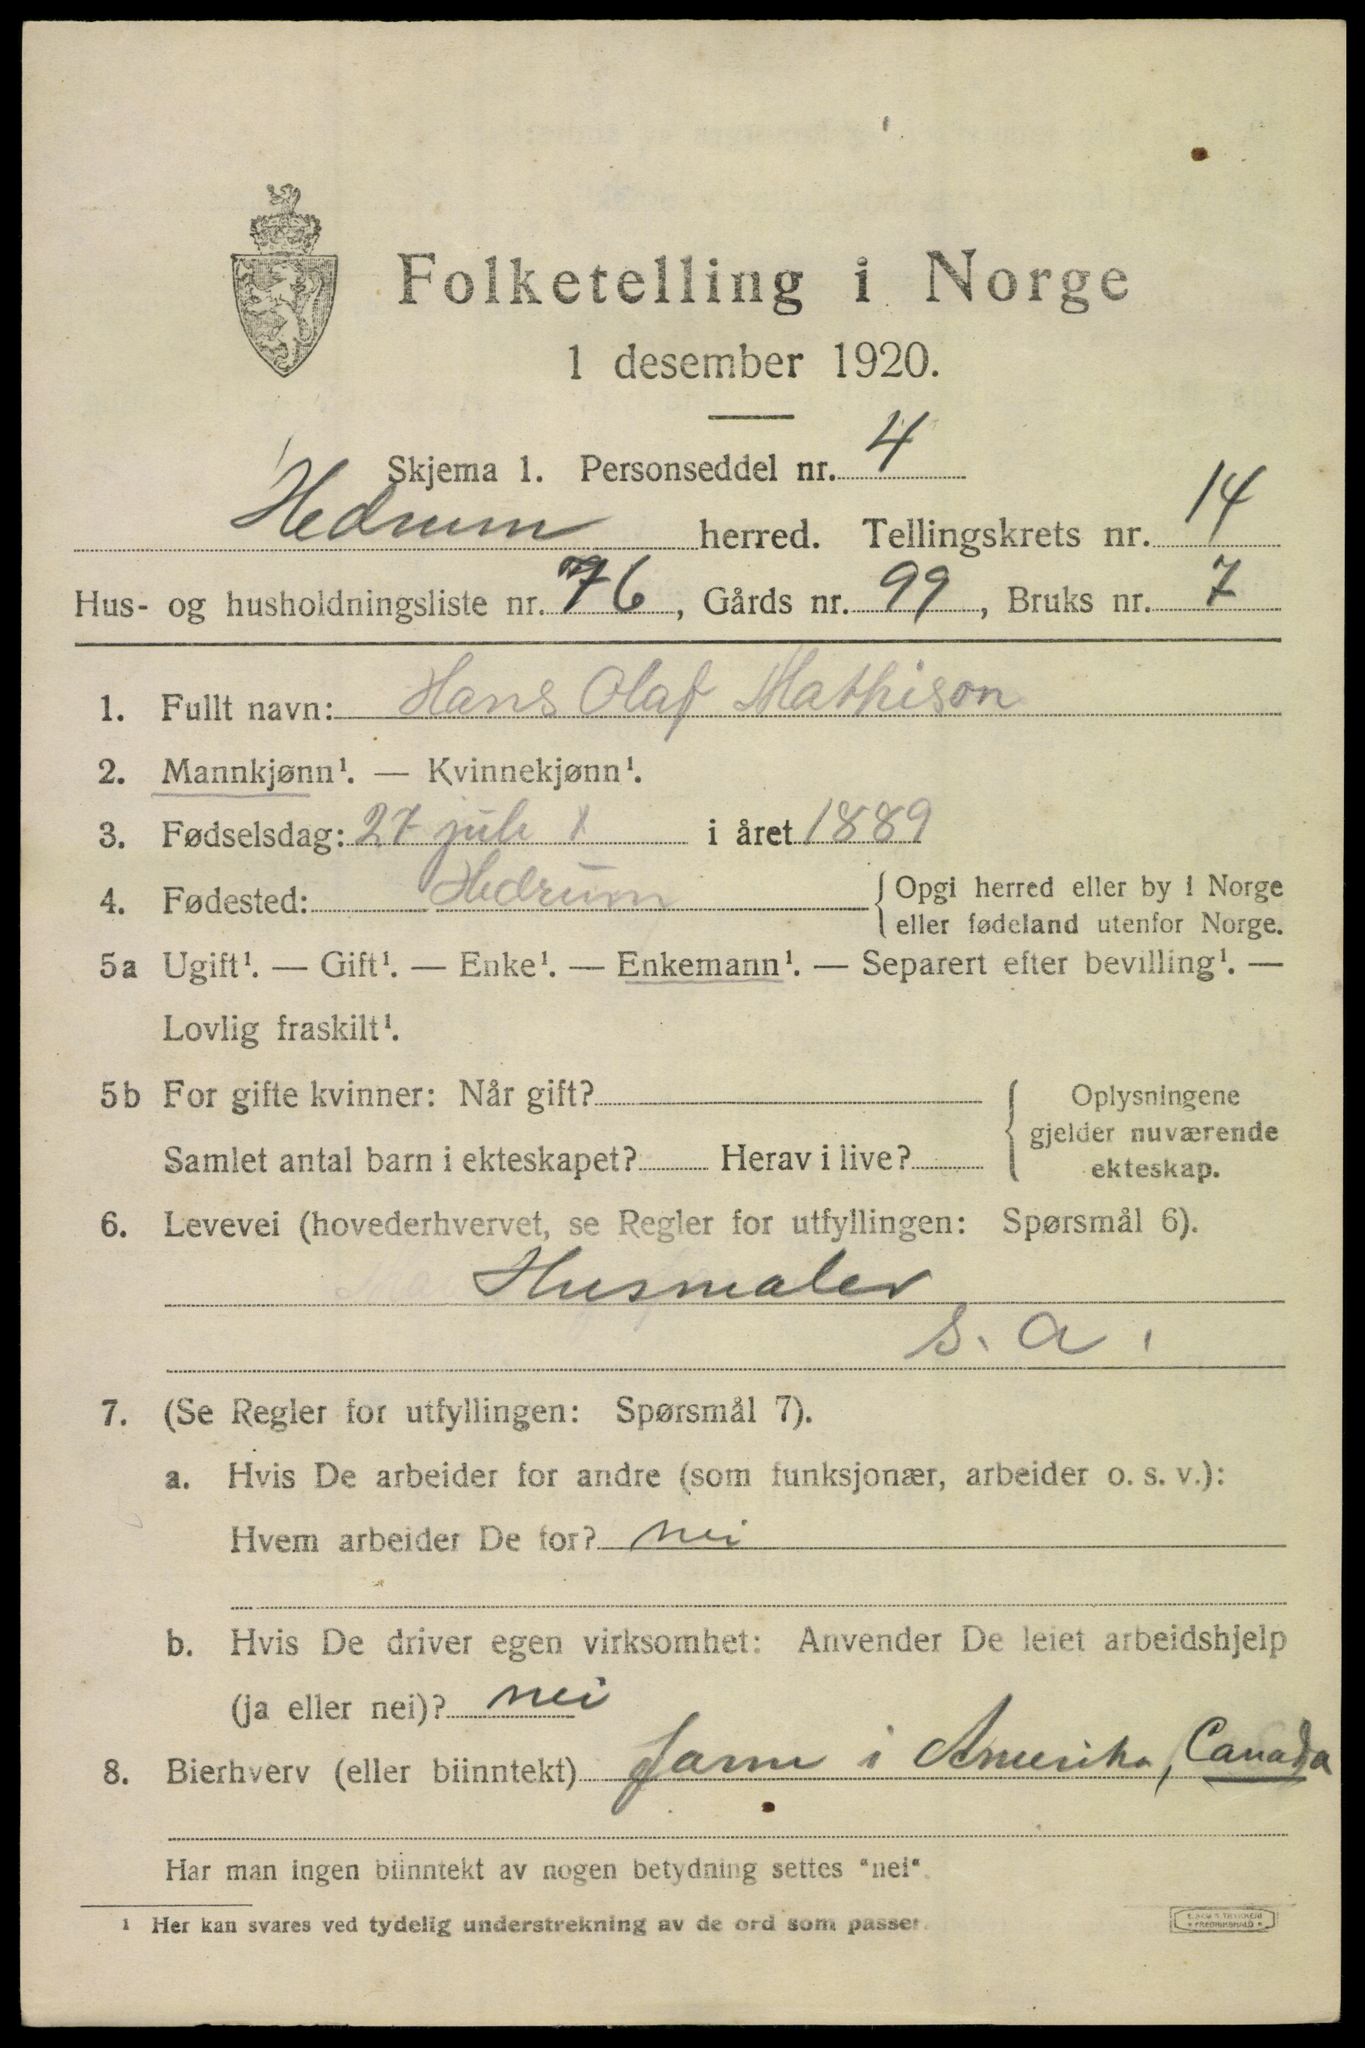 Folketelling i Norge
1 desember 1920.
Skjema 1. Personseddel nr. 4
Hedrum herred. Tellingskrets nr. 14
Hus- og husholdningsliste nr. 76, Gårds nr. 99, Bruks nr. 7
1. Fullt navn: Hans Olaf Mathison
2. Mannkjønn¹. — Kvinnekjønn¹.
3. Fødselsdag: 27 juli i året 1889
4. Fødested: Hedrum { Opgi herred eller by i Norge
eller fødeland utenfor Norge.
5a Ugift¹. — Gift¹. — Enke¹. — Enkemann¹. — Separert efter bevilling¹. —
Lovlig fraskilt¹.
5b For gifte kvinner: Når gift? { Oplysningene
gjelder nuværende
Samlet antal barn i ekteskapet? Herav i live?
ekteskap.
6. Levevei (hovederhvervet, se Regler for utfyllingen: Spørsmål 6).
Husmaler
s. a.
7. (Se Regler for utfyllingen: Spørsmål 7).
a. Hvis De arbeider for andre (som funksjonær, arbeider o. s. v.):
Hvem arbeider De for? nei
b. Hvis De driver egen virksomhet: Anvender De leiet arbeidshjelp
(ja eller nei)? nei
8. Bierhverv (eller biinntekt) farm i Amerika, Canada
Har man ingen biinntekt av nogen betydning settes "nei".
¹ Her kan svares ved tydelig understrekning av de ord som passer.